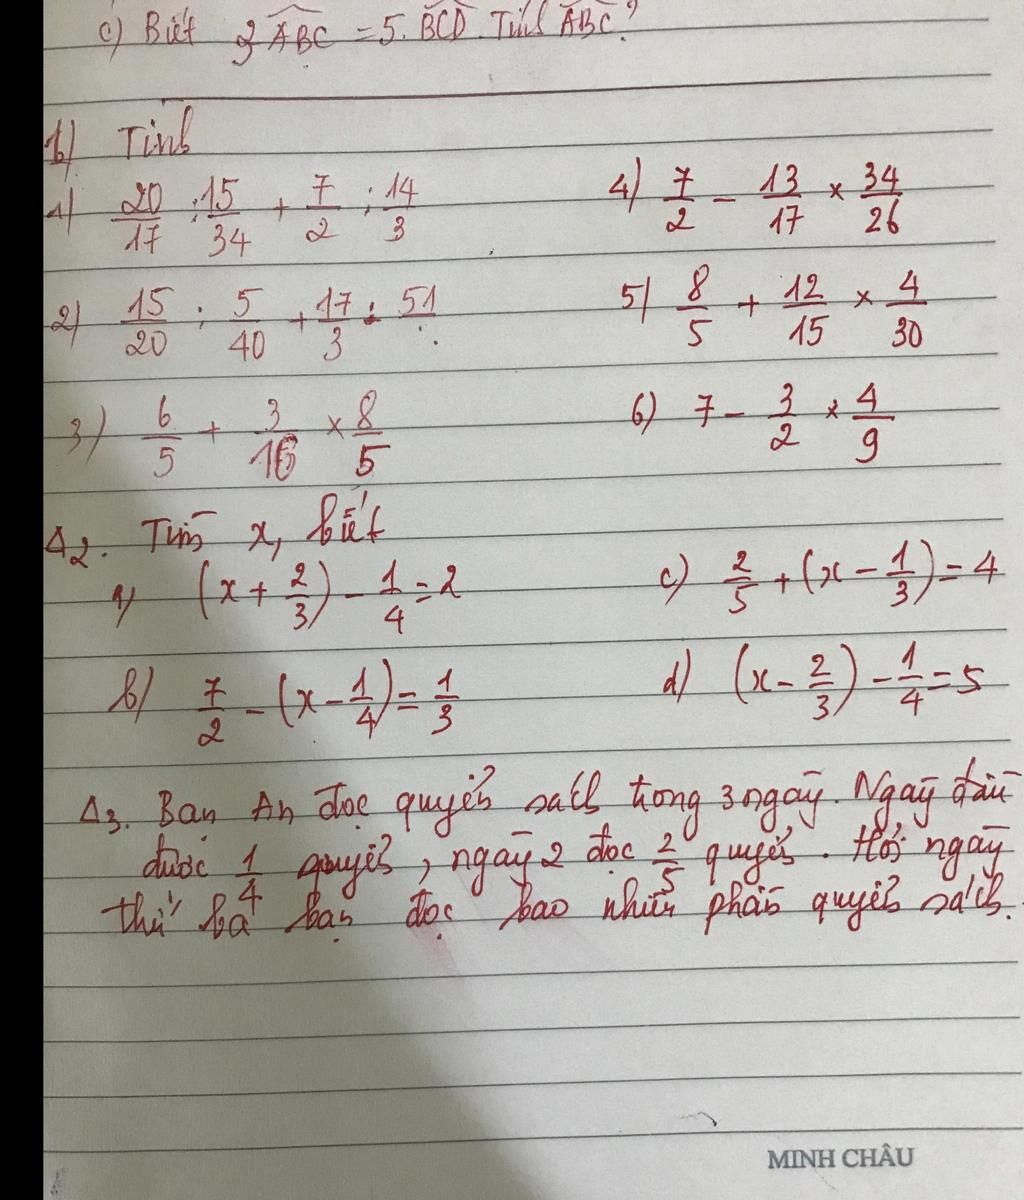 c) Biết 2 ABC = 5. BCD. Tính ABC?
b) Tính
1) 20/17 : 15/34 + 7/2 : 14/3
4) 7/2 - 13/17 × 34/26
2) 15/20 : 5/40 + 17/3 : 51
5) 8/5 + 12/15 × 4/30
3) 6/5 + 3/16 × 8/5
6) 7 - 3/2 × 4/9
A2. Tìm x, biết
a) (x + 2/3) - 1/4 = 2
c) 2/5 + (x - 1/3) = 4
b) 7/2 - (x - 1/4) = 1/3
d) (x - 2/3) - 1/4 = 5
A3. Bạn An đọc quyển sách trong 3 ngày. Ngày đầu
được 1/4 quyển, ngày 2 đọc 2/5 quyển. Hỏi ngày
thứ ba bạn đọc bao nhiêu phần quyển sách.
MINH CHÂU